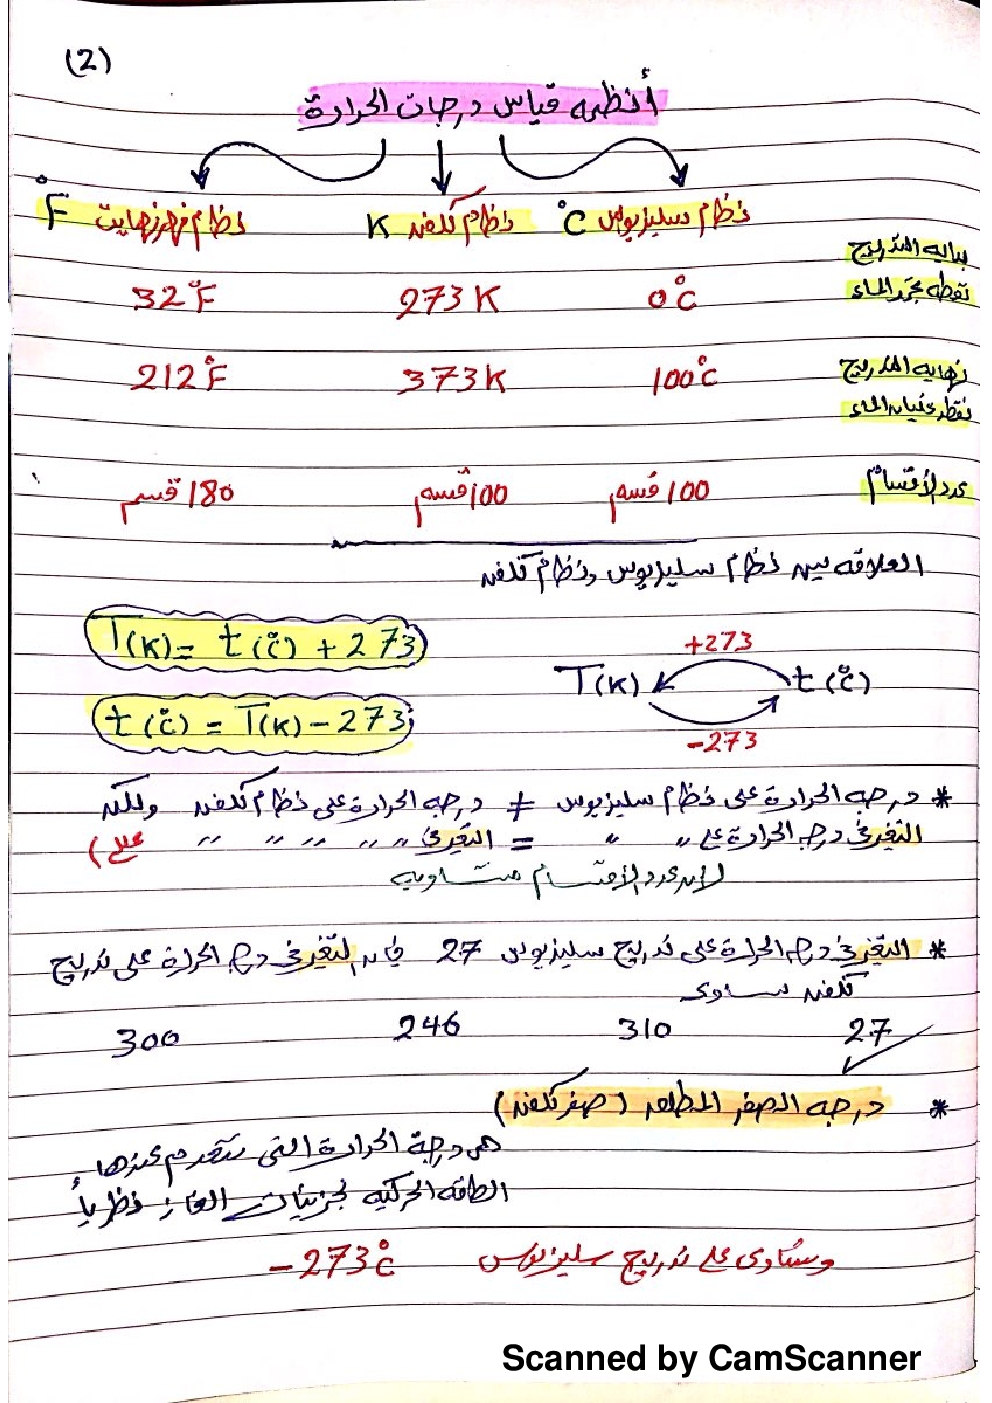 (2)
أنظمه قياس درجات الحرارة
نظام سليزيوس °C نظام كلفن K نظام فهرنهايت °F
بدايه التدريج
نقطه تجمد الماء 0°C 273 K 32°F
نهايه التدريج 100°C 373 K 212°F
نقطه غليان الماء
عدد الأقسام 100 قسم 100 قسم 180 قسم
العلاقه بين نظام سليزيوس ونظام كلفن
T(K) = t(°C) + 273
+273
T(K) t(°C)
t(°C) = T(K) - 273
-273
* درجه الحرارة على نظام سليزيوس ≠ درجه الحرارة على نظام كلفن ولكن
التغير فى درجه الحرارة على " " = التغير فى " " " " " " (علل
لان عدد الأقسام متساويه
* التغير فى درجه الحرارة على تدريج سليزيوس 27 فإن التغير فى درجه الحرارة على تدريج
كلفن يساوى
27 310 246 300
* درجه الصفر المطلق (صفر كلفن)
هى درجة الحرارة التى تنعدم عندها
الطاقه الحركيه لجزيئات الغاز نظرياً
وتساوى على تدريج سليزيوس -273°C
Scanned by CamScanner